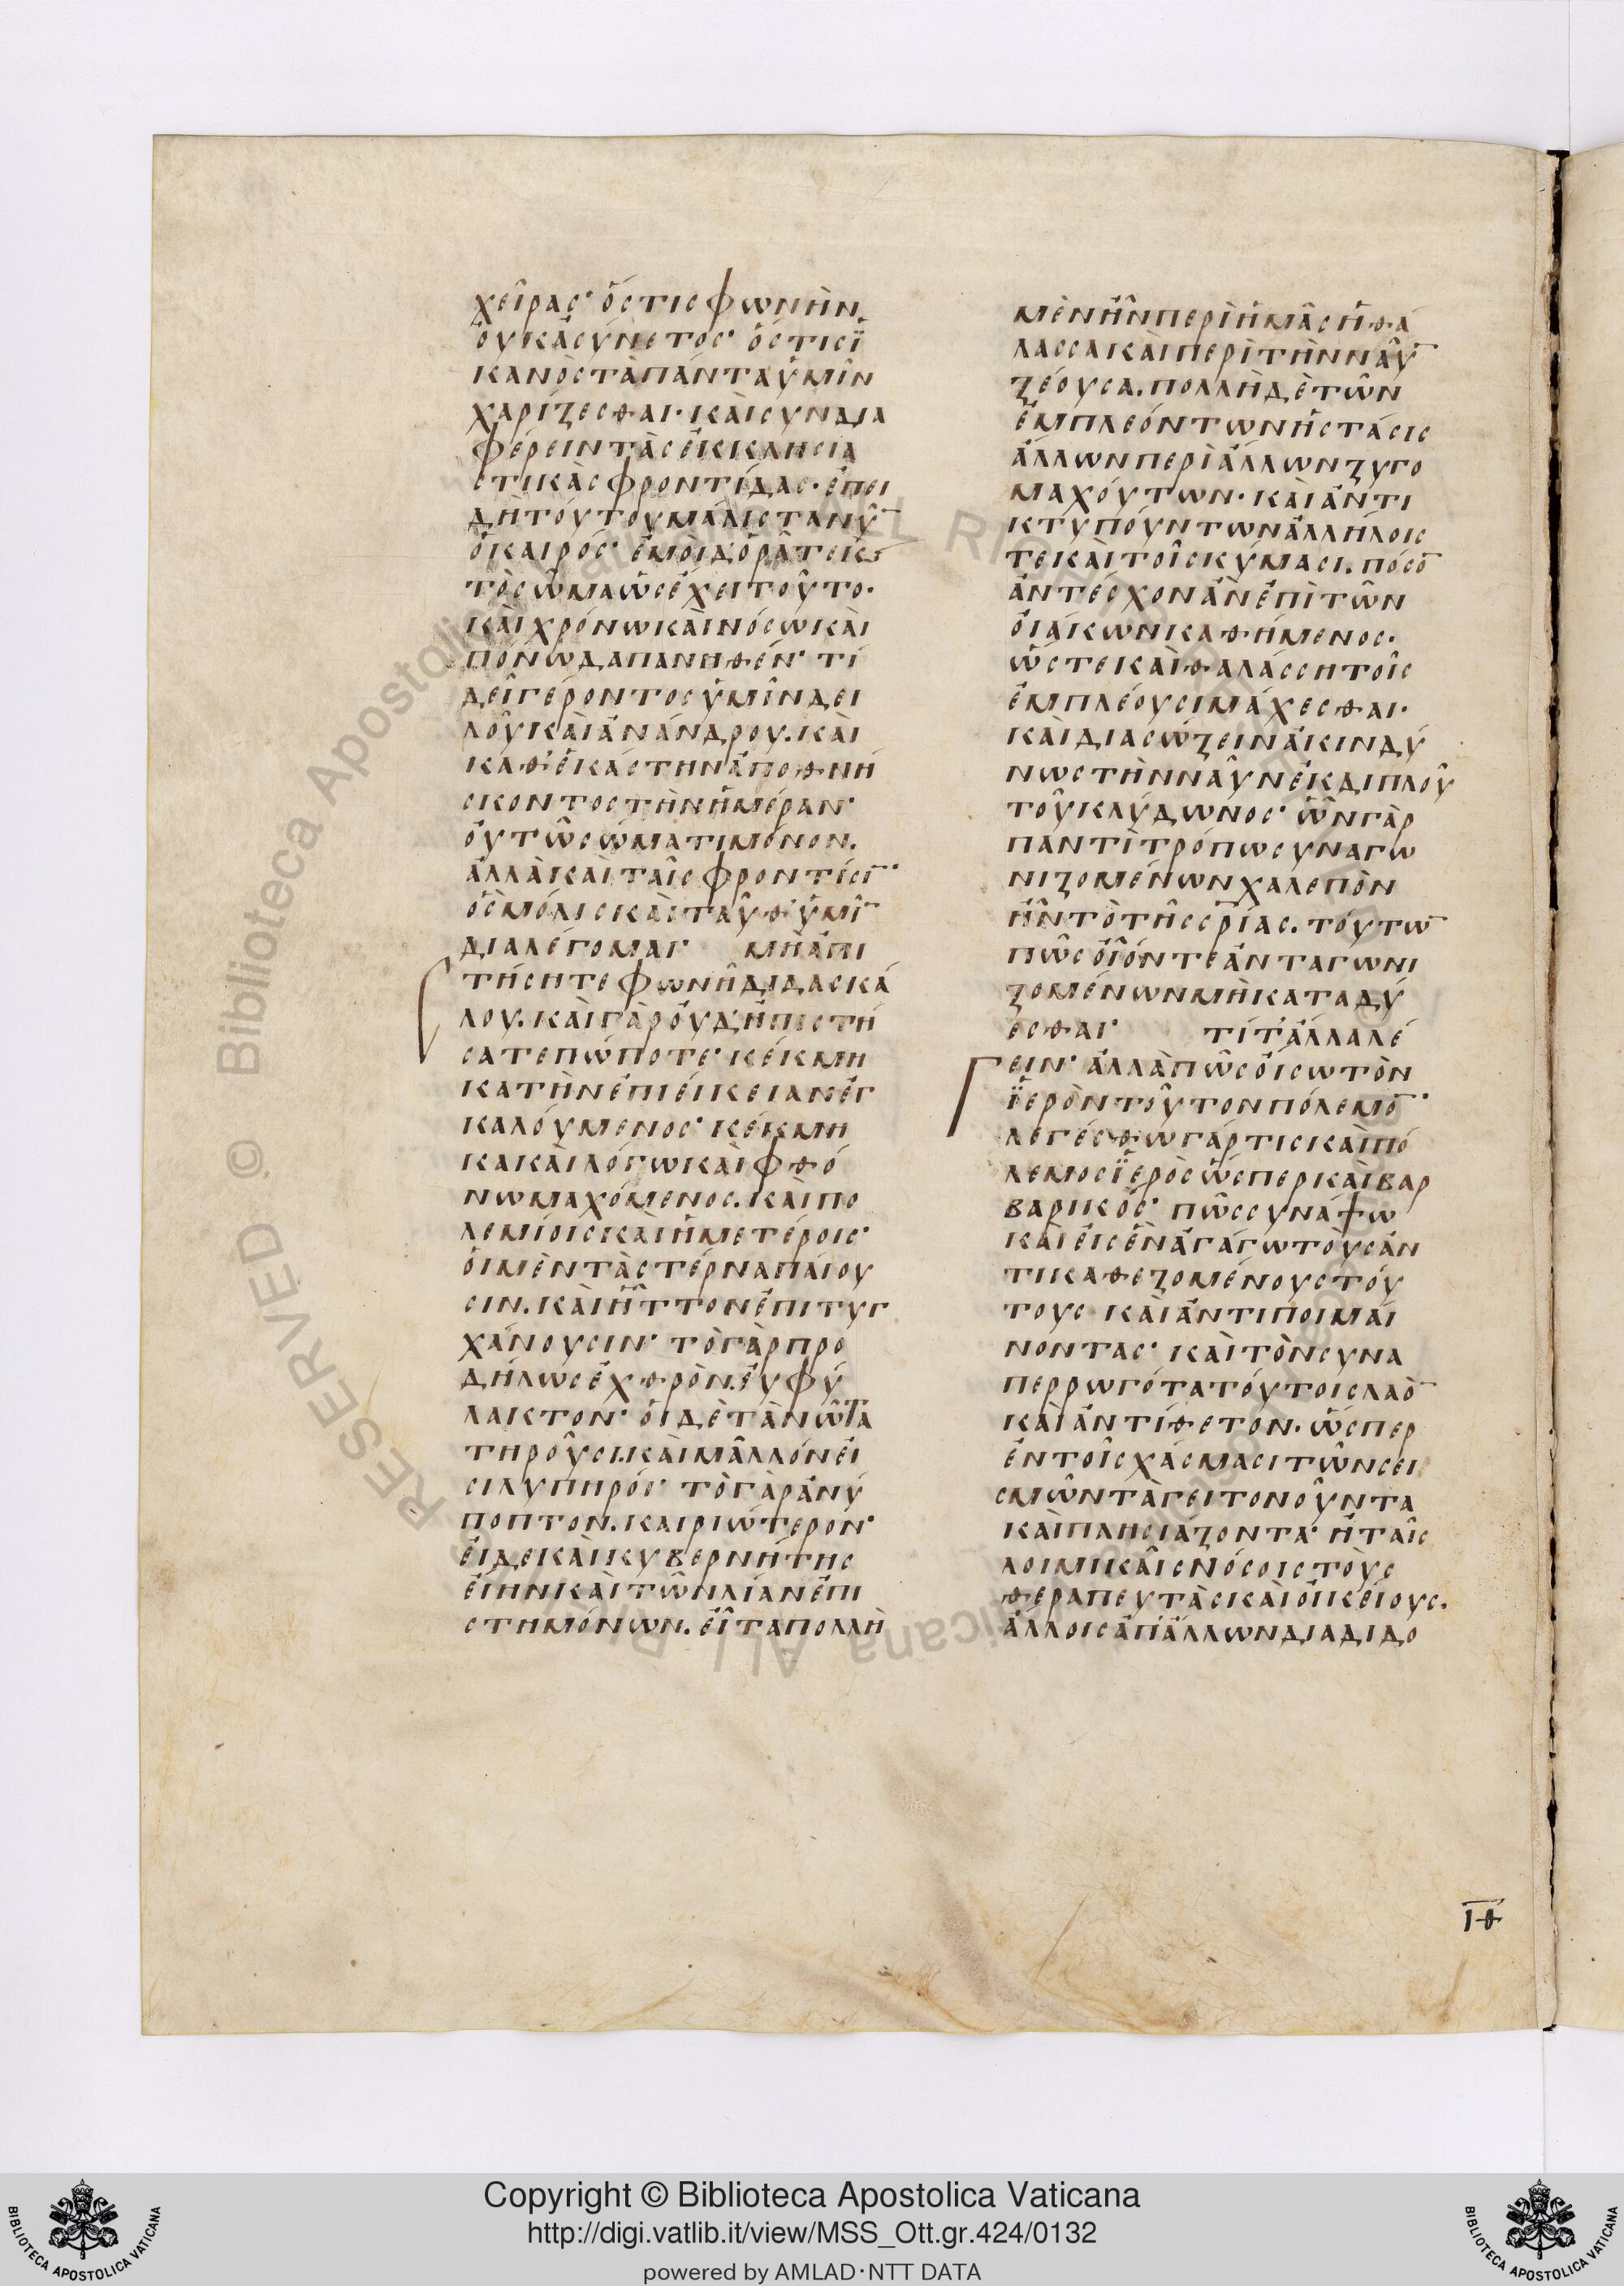 χεῖρας· ὅς τις φωνὴν
οὐκ ἀσύνετος· ὅς τις ἱ
κανὸς τὰ πάντα ὑμῖν
χαρίζεσθαι· καὶ συνδια
φέρειν τὰς ἐκκλησια
στικὰς φροντίδας· ἐπει
δὴ τούτου μάλιστα νῦ
ὁ καιρός· ἐμοὶ δ ὁρᾶτε ὡς
τὸ σῶμα ὡς ἔχει τοῦτο·
καὶ χρόνω καὶ νόσω καὶ
πόνω δαπανηθέν· τί
δεῖ γέροντος ὑμῖν δει
λοῦ καὶ ἀνάνδρου. καὶ
καθ' ἑκάστην ἀποθνή
σκοντος τὴν ἡμέραν·
οὐ τῶ σώματι μόνον.
ἀλλὰ καὶ ταῖς φροντίσι·
ὃς μόλις καὶ ταῦθ' ὑμῖ
διαλέγομαι· μὴ ἀπι
στήσητε φωνῆ διδασκά
λου. καὶ γὰρ οὐδ' ἠπιστή
σατε πώποτε· κέκμη
κα τὴν ἐπιείκειαν ἐγ
καλούμενος· κέκμη
κα καὶ λόγω καὶ φθό
νω μαχόμενος. καὶ πο
λεμίοις καὶ ἡμετέροις·
οἱ μὲν τὰ στέρνα παίου
σιν. καὶ ἧττον ἐπιτυγ
χάνουσιν· τὸ γὰρ προ
δήλως ἐχθρὸν. εὐφύ
λακτον· οἱ δὲ τὰ νῶτα
τηροῦσι. καὶ μᾶλλόν εἰ
σι λυπηροί· τὸ γὰρ ἀνύ
ποπτον. καιριώτερον·
εἰ δὲ καὶ κυβερνήτης
εἴην καὶ τῶν λίαν ἐπι
στημόνων. εἶτα πολλὴ
μὲν ἦν περὶ ἡμᾶς ἡ θά
λασσα καὶ περὶ τὴν ναῦ
ζέουσα. πολλὴ δὲ τῶν
ἐμπλεόντων ἡ στάσις
ἄλλων περὶ ἄλλων ζυγο
μαχούτων· καὶ ἀντι
κτυπούντων ἀλλήλοις
τε καὶ τοῖς κύμασι. πόσο
ἂν τέσχον ἂν ἐπὶ τῶν
οἰάκων καθήμενος.
ὥστε καὶ θαλάσση τοῖς
ἐμπλέουσι μάχεσθαι·
καὶ διασώζειν ἀκινδύ
νως τὴν ναῦν ἐκ διπλοῦ
τοῦ κλύδωνος· ὧν γὰρ
παντὶ τρόπω συναγω
νιζομένων χαλεπὸν
ἦν τὸ τῆς σρίας. τούτω
πῶς οἷόν τε ἀνταγωνι
ζομένων μὴ καταδύ
εσθαι· τί τ' ἄλλα λέ
ειν· ἀλλὰ πῶς οἴσω τὸν
ἱερὸν τοῦτον πόλεμο·
λεγέσθω γάρ τις καὶ πό
λεμος ἱερὸς ὥσπερ καὶ βαρ
βαρικός· πῶς συνάψω
καὶ εἰς ἓν ἀγάγω τοὺς ἀν
τικαθεζομένους τού
τους καὶ ἀντιποιμαί
νοντας· καὶ τὸν συνα
περρωγότα τούτοις λαὸ
καὶ ἀντίθετον. ὥσπερ
ἐν τοῖς χάσμασι τῶν σει
σμῶν τὰ γειτονοῦντα
καὶ πλησιάζοντα· ἢ ταῖς
λοιμικαῖς νόσοις τοὺς
θεραπευτὰς καὶ οἰκείους.
ἄλλοις ἀπ' ἄλλων διαδιδο
ιθ
Copyright © Biblioteca Apostolica Vaticana
http://digi.vatlib.it/view/MSS_Ott.gr.424/0132
powered by AMLAD·NTT DATA